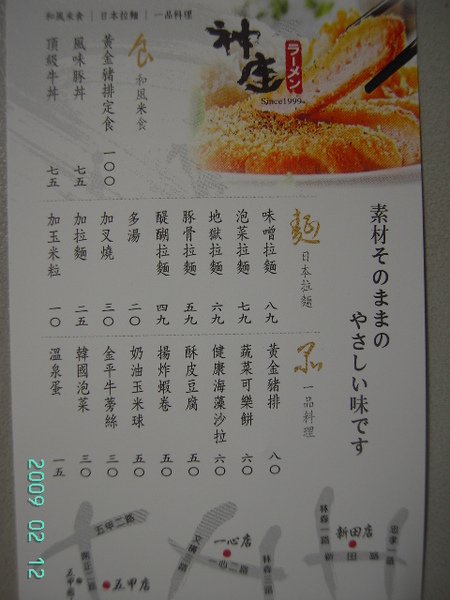 和風米食｜日本拉麵｜一品料理
神座
ラーメン
Since1999
素材そのままの
やさしい味です
食 和風米食
黃金豬排定食 一〇〇
風味豚丼 七五
頂級牛丼 七五
麵 日本拉麵
味噌拉麵 八九
泡菜拉麵 七九
地獄拉麵 六九
豚骨拉麵 五九
醍醐拉麵 四九
多湯 二〇
加叉燒 三〇
加拉麵 二五
加玉米粒 一〇
一品料理
黃金豬排 八〇
蔬菜可樂餅 六〇
健康海藻沙拉 六〇
酥皮豆腐 五〇
揚炸蝦卷 五〇
奶油玉米球 五〇
金平牛蒡絲 三〇
韓國泡菜 三〇
溫泉蛋 一五
忠孝一路
新田店
新田路
林森一路
林森三路
一心店
一心二路
文橫三路
五甲二路
南正二路
五甲店
2009 02 12